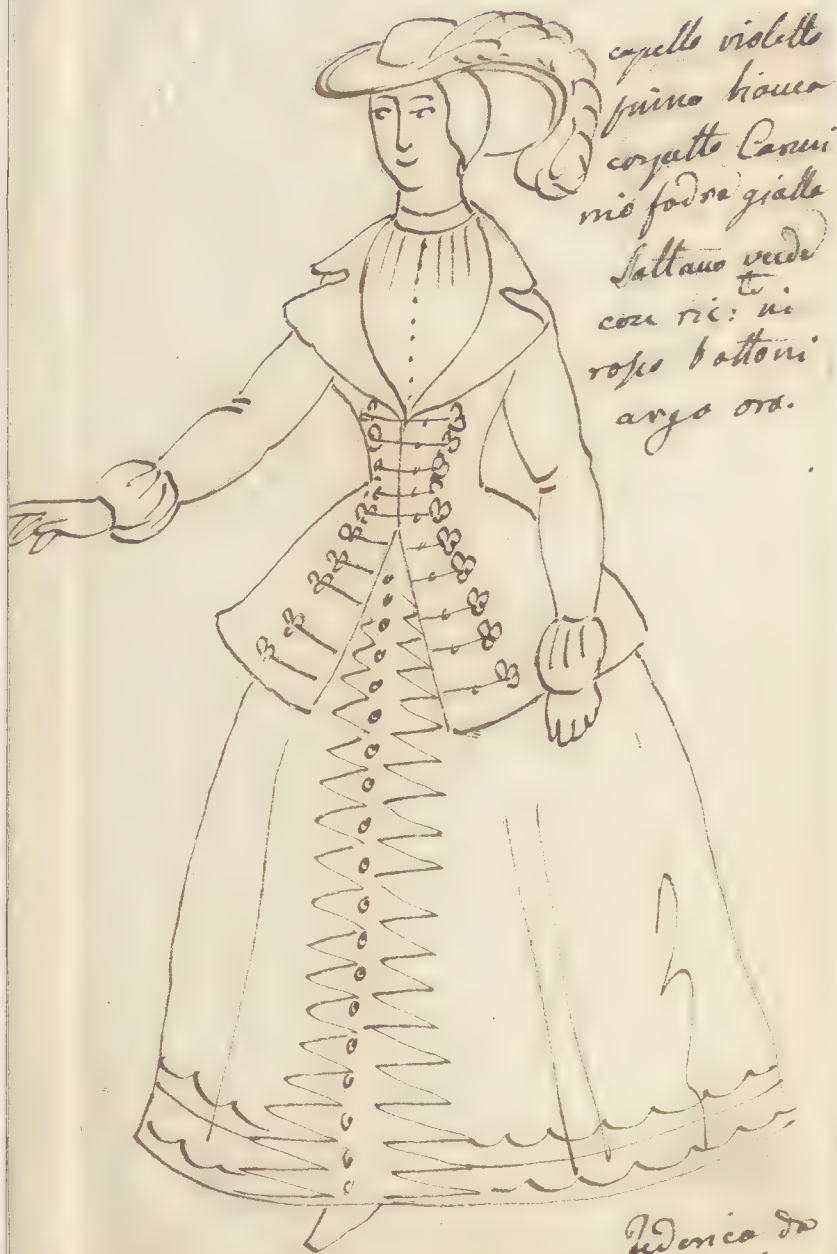 capello violetto
piuma bianca
corpetto Carmi
nio fodra gialla
Sottana verde
con ric: ti ni
rosso bottoni
argo oro.
Federica da